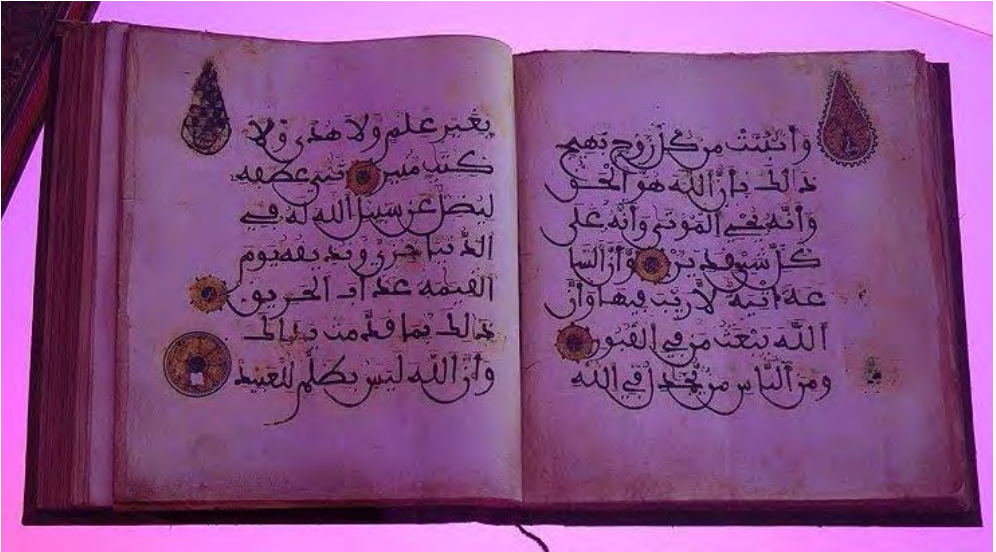 وأنبتت من كل زوج بهيج
ذالك بأن الله هو الحق
وأنه يحي الموتى وأنه على
كل شيء قدير وأن السا
عة ءاتية لا ريب فيها وأن
الله يبعث من في القبور
ومن الناس من يجدل في الله
بغير علم ولا هدى ولا
كتب منير ثني عطفه
ليضل عن سبيل الله له في
الدنيا خزي ونذيقه يوم
القيمة عذاب الحريق
ذالك بما قدمت يداك
وأن الله ليس بظلم للعبيد